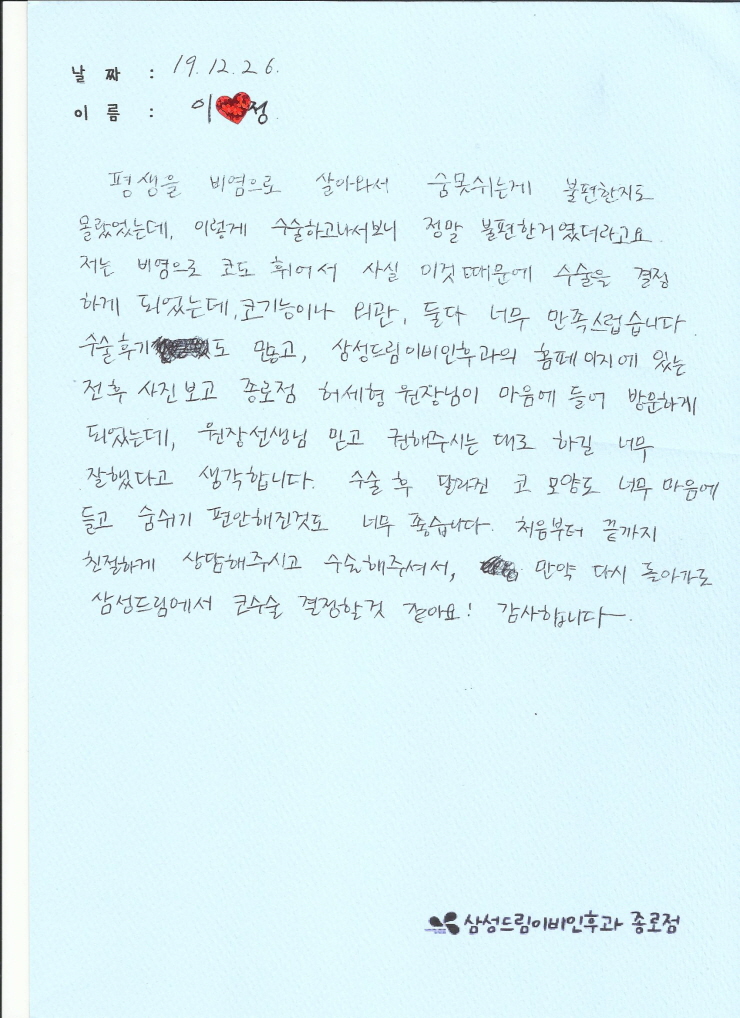 날 짜 : 19.12.26.
이 름 : 이 정
평생을 비염으로 살아와서 숨못쉬는게 불편한지도
몰랐었는데, 이렇게 수술하고나서보니 정말 불편한거였더라고요.
저는 비염으로 코도 휘어서 사실 이것때문에 수술을 결정
하게 되었는데, 코기능이나 외관, 둘다 너무 만족스럽습니다.
수술후기도 많고, 삼성드림이비인후과의 홈페이지에 있는
전후 사진보고 종로점 허세형 원장님이 마음에 들어 방문하게
되었는데, 원장선생님 믿고 권해주시는 대로 하길 너무
잘했다고 생각합니다. 수술 후 달라진 코 모양도 너무 마음에
들고 숨쉬기 편안해진것도 너무 좋습니다. 처음부터 끝까지
친절하게 상담해주시고 수술해주셔서, 만약 다시 돌아가도
삼성드림에서 코수술 결정할것 같아요! 감사합니다.
삼성드림이비인후과 종로점